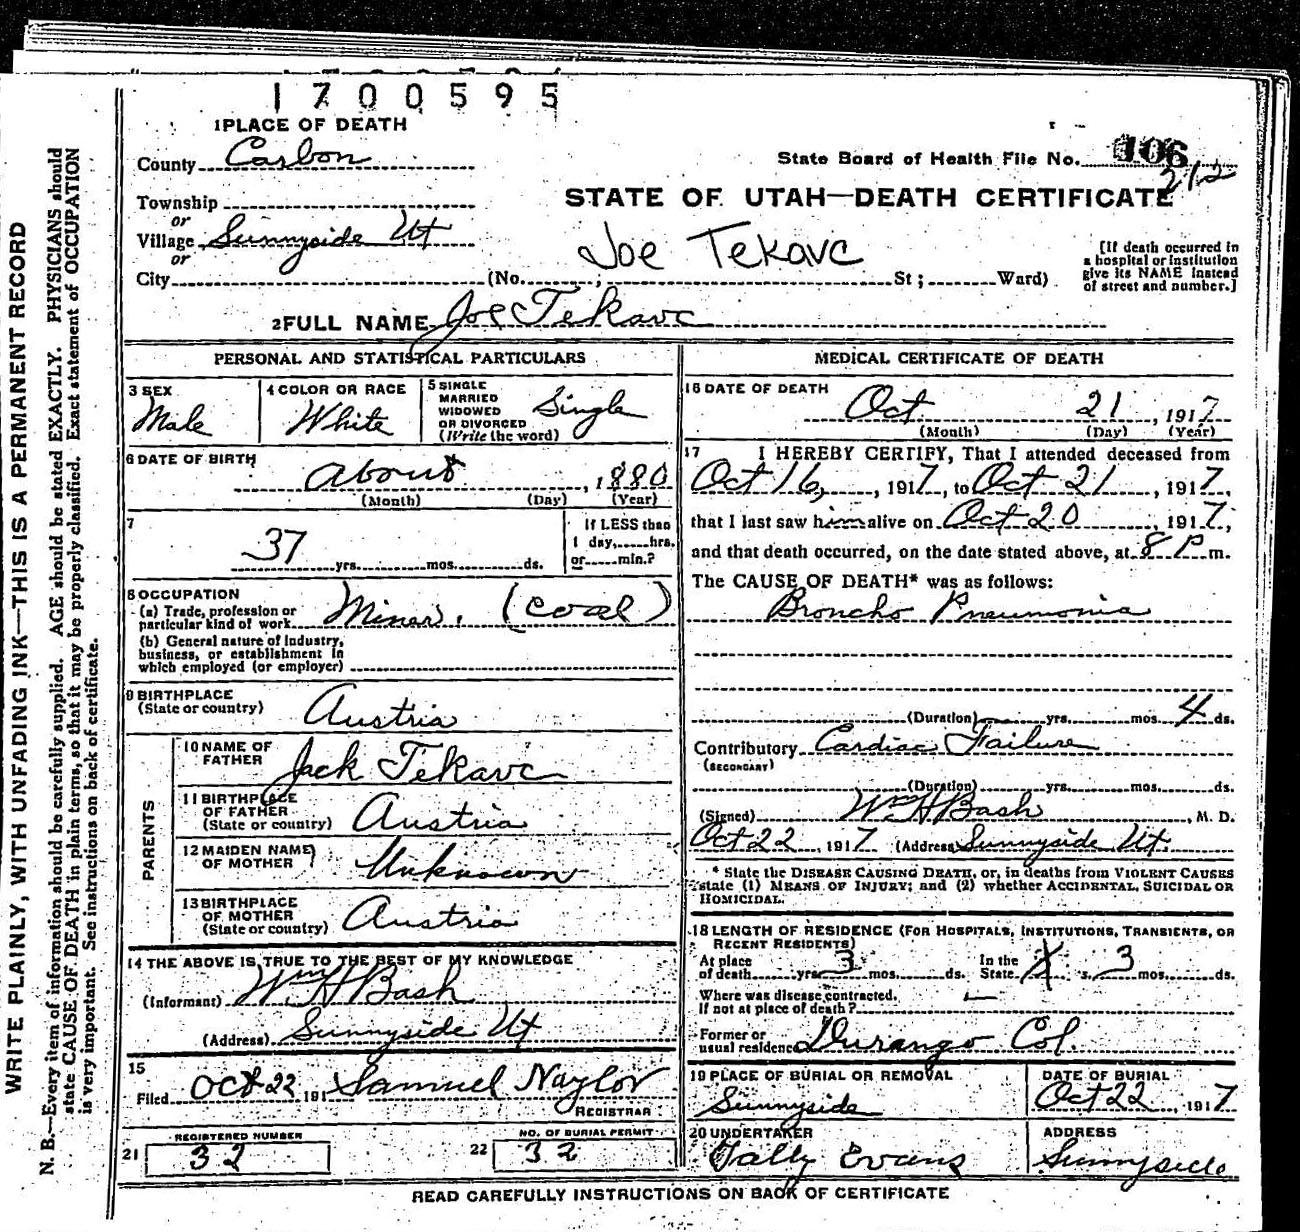 1700595
1 PLACE OF DEATH
County Carbon
State Board of Health File No. 106
212
Township
or
Village Sunnyside Ut
or
City (No. ; St ; Ward)
STATE OF UTAH—DEATH CERTIFICATE
Joe Tekavc
[If death occurred in
a hospital or institution
give its NAME instead
of street and number.]
2 FULL NAME Joe Tekavc
PERSONAL AND STATISTICAL PARTICULARS
3 SEX
Male
4 COLOR OR RACE
White
5 SINGLE
MARRIED
WIDOWED
OR DIVORCED
(Write the word)
Single
6 DATE OF BIRTH
about , 1880
(Month) (Day) (Year)
7
37 yrs. mos. ds.
If LESS than
1 day, hrs.
or min.?
8 OCCUPATION
(a) Trade, profession or
particular kind of work Miner. (coal)
(b) General nature of industry,
business, or establishment in
which employed (or employer)
9 BIRTHPLACE
(State or country) Austria
PARENTS
10 NAME OF
FATHER Jack Tekavc
11 BIRTHPLACE
OF FATHER
(State or country) Austria
12 MAIDEN NAME
OF MOTHER Unknown
13 BIRTHPLACE
OF MOTHER
(State or country) Austria
14 THE ABOVE IS TRUE TO THE BEST OF MY KNOWLEDGE
(Informant) Wm H Bash
(Address) Sunnyside Ut
15
Filed Oct 22 191 Samuel Naylor
REGISTRAR
REGISTERED NUMBER
21 32
NO. OF BURIAL PERMIT
22 32
MEDICAL CERTIFICATE OF DEATH
16 DATE OF DEATH
Oct 21 , 1917
(Month) (Day) (Year)
17 I HEREBY CERTIFY, That I attended deceased from
Oct 16, , 1917, to Oct 21 , 1917,
that I last saw him alive on Oct 20 , 1917,
and that death occurred, on the date stated above, at 8 P m.
The CAUSE OF DEATH* was as follows:
Broncho Pneumonia
(Duration) yrs. mos. 4 ds.
Contributory Cardiac Failure
(SECONDARY)
(Duration) yrs. mos. ds.
(Signed) Wm H Bash , M. D.
Oct 22 , 1917 (Address) Sunnyside Ut.
* State the DISEASE CAUSING DEATH, or, in deaths from VIOLENT CAUSES
state (1) MEANS OF INJURY; and (2) whether ACCIDENTAL, SUICIDAL OR
HOMICIDAL.
18 LENGTH OF RESIDENCE (FOR HOSPITALS, INSTITUTIONS, TRANSIENTS, OR
RECENT RESIDENTS)
At place
of death yrs 3 mos. ds.
In the
State s. 3 mos. ds.
Where was disease contracted,
If not at place of death? —
Former or
usual residence Durango Col.
19 PLACE OF BURIAL OR REMOVAL
Sunnyside
DATE OF BURIAL
Oct 22 , 1917
20 UNDERTAKER
Tally Evans
ADDRESS
Sunnyside
READ CAREFULLY INSTRUCTIONS ON BACK OF CERTIFICATE
WRITE PLAINLY, WITH UNFADING INK—THIS IS A PERMANENT RECORD
N. B.—Every item of information should be carefully supplied. AGE should be stated EXACTLY. PHYSICIANS should
state CAUSE OF DEATH in plain terms, so that it may be properly classified. Exact statement of OCCUPATION
is very important. See instructions on back of certificate.